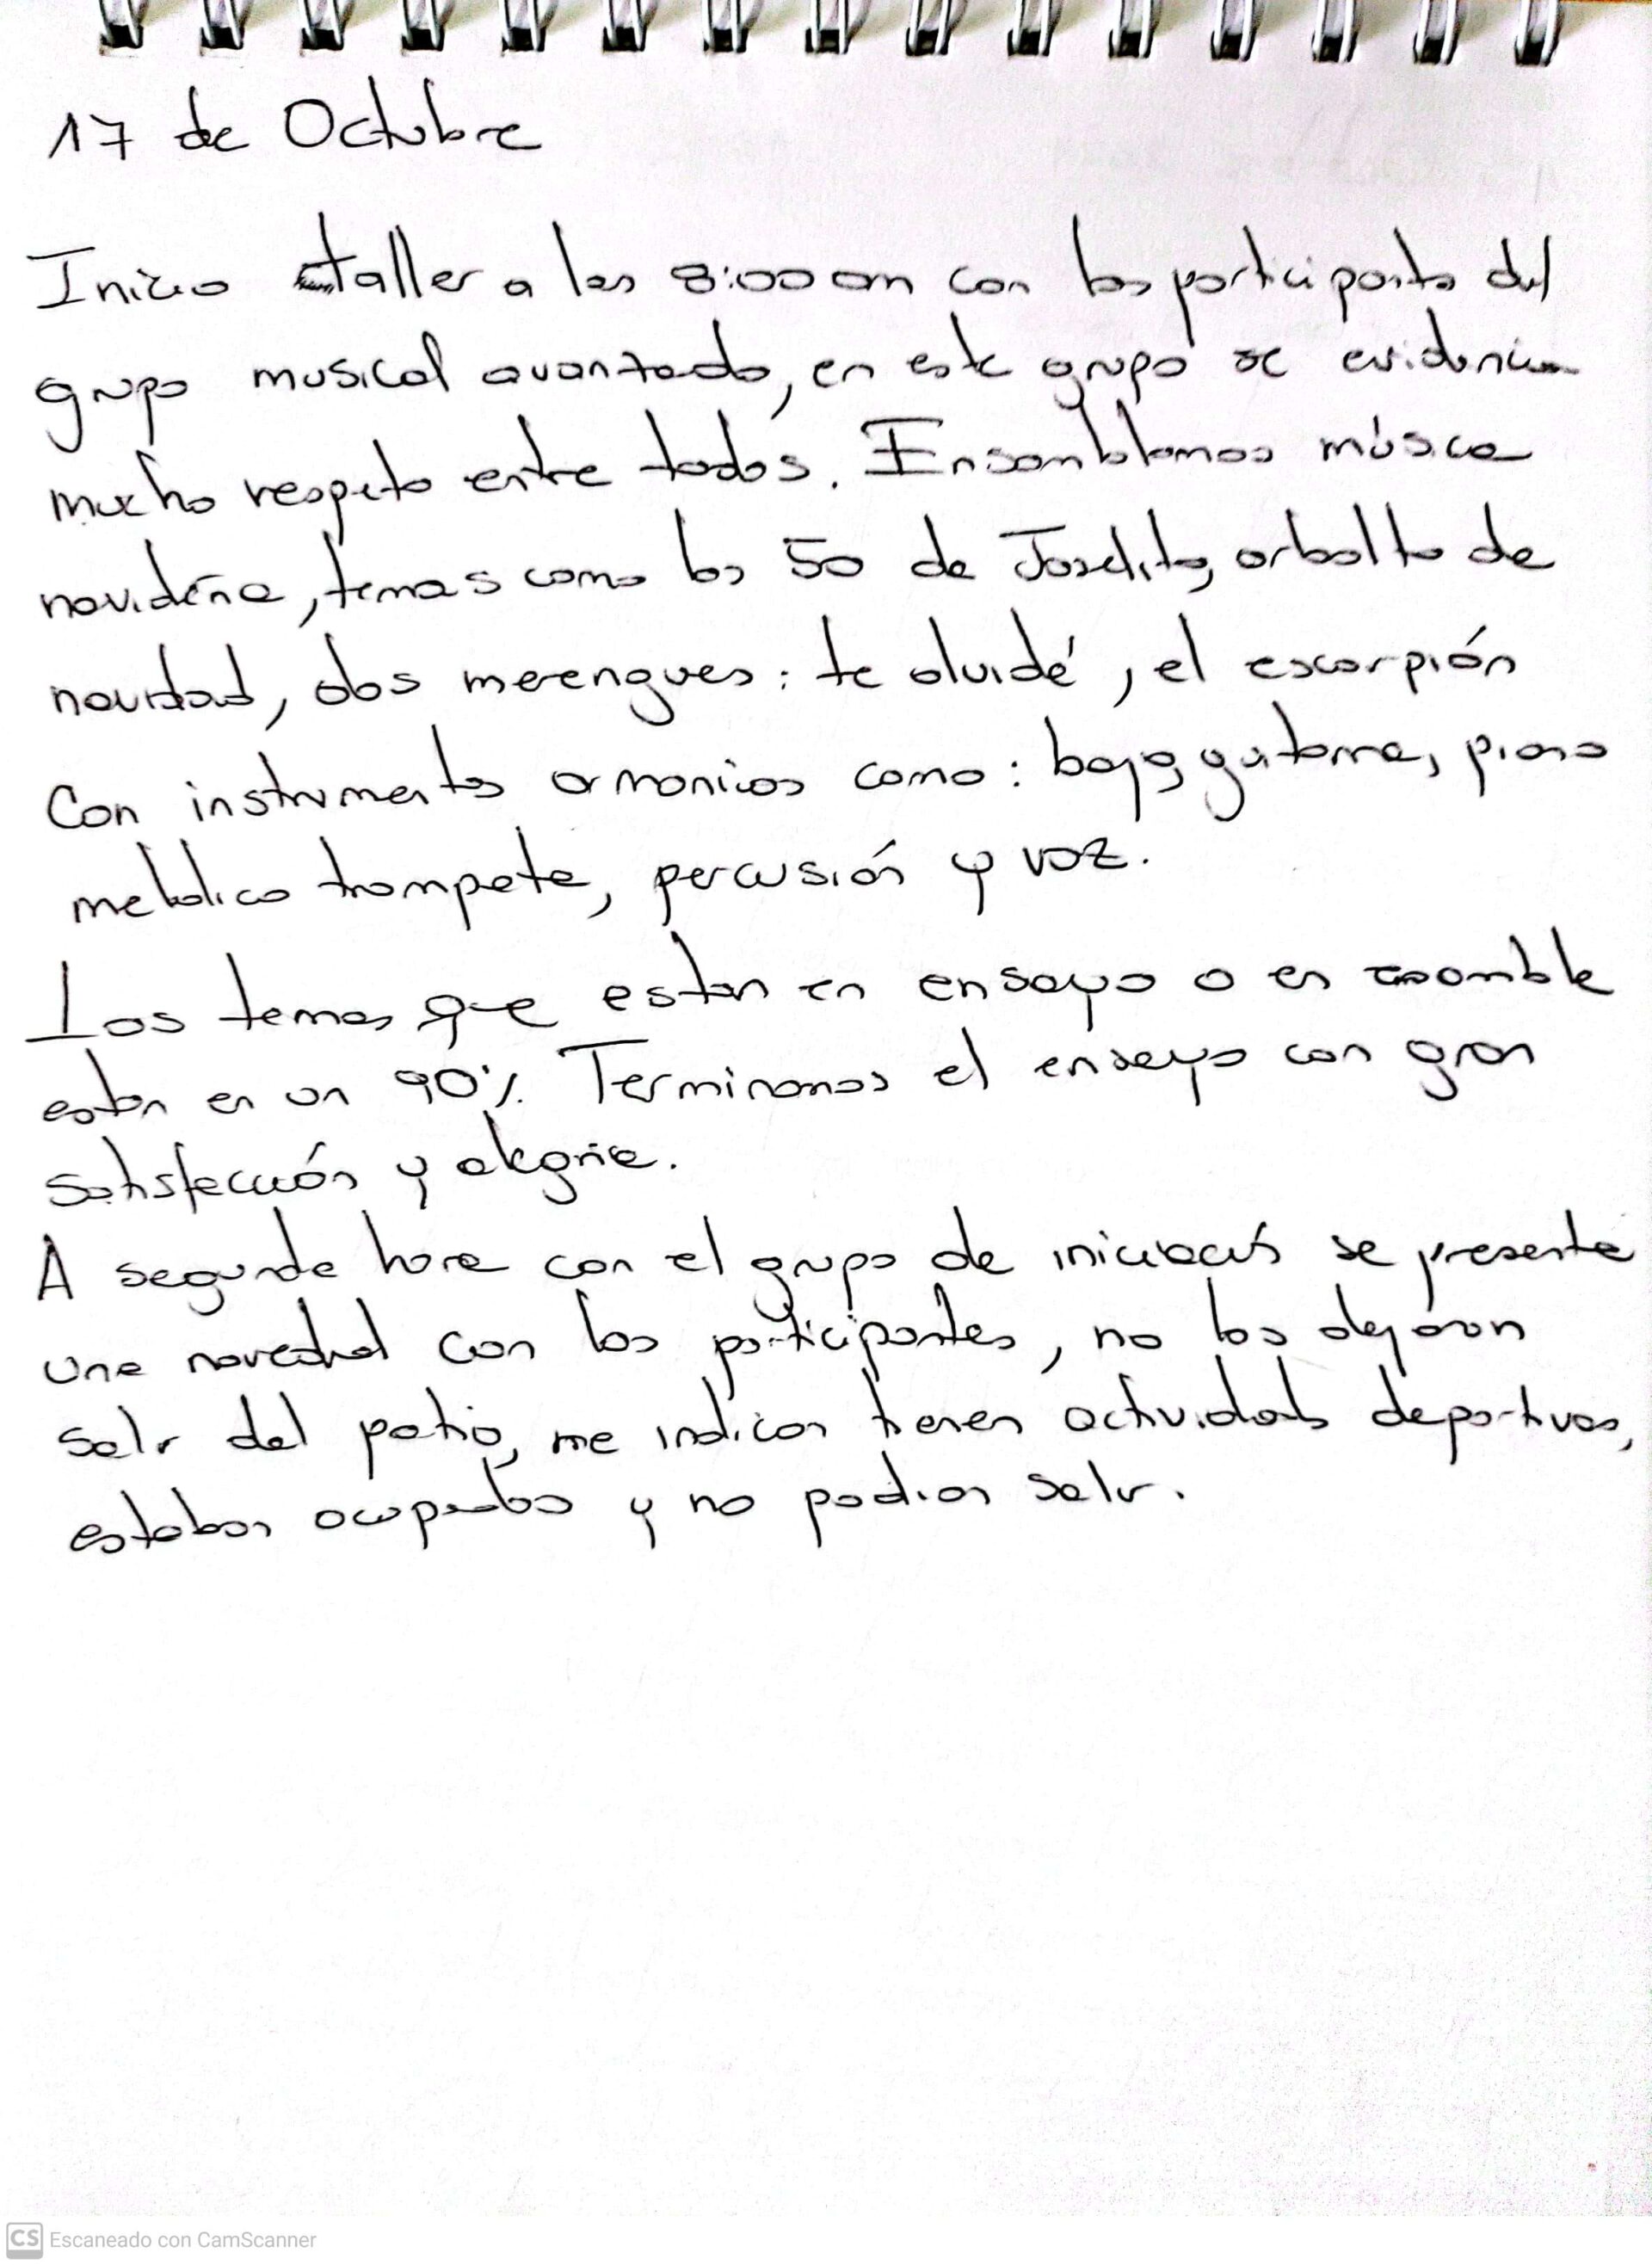 17 de Octubre
Inicio taller a las 8:00 am con los participantes del
grupo musical avanzado, en este grupo se evidencia
mucho respeto entre todos. Ensamblamos música
navideña, temas como los 50 de Joselito, arbolito de
navidad, dos merengues: te olvidé, el escorpión
Con instrumentos armonicos como: bajo, guitarra, piano
melodico trompeta, percusión y voz.
Los temas que estan en ensayo o en ensamble
estan en un 90%. Terminamos el ensayo con gran
satisfacción y alegria.
A segunda hora con el grupo de iniciación se presenta
una novedad con los participantes, no los dejaron
salir del patio, me indican tienen actividades deportivas,
estaban ocupados y no podian salir.
CS Escaneado con CamScanner